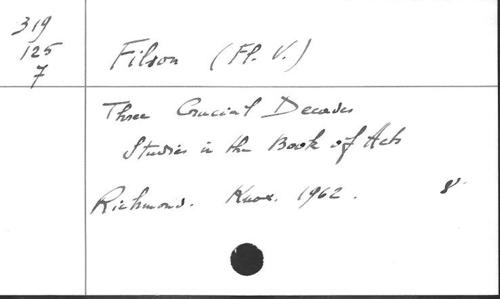 319
125
7
Filson (Fl. V.)
Three Crucial Decades
Studies in the Book of Acts
Richmond. Knox. 1962. 8°